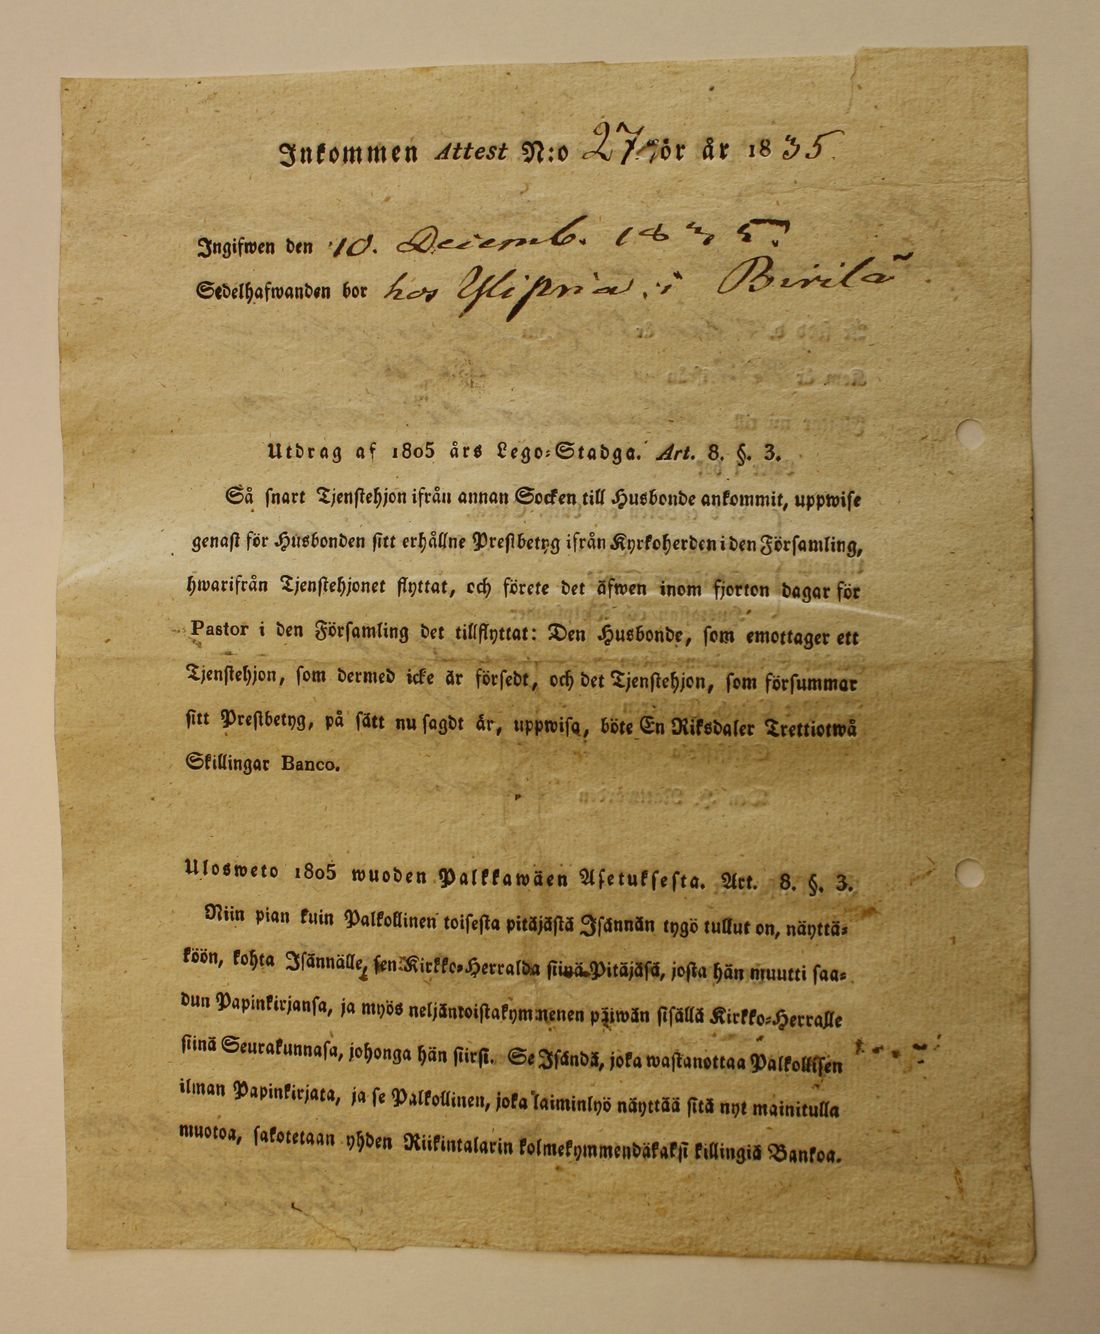 Inkommen Attest N:o 27 för år 1835.
Ingifwen den 10. Decemb. 1835.
Sedelhafwanden bor hos Ylipria i Birilä
Utdrag af 1805 års Lego-Stadga. Art. 8. §. 3.
Så snart Tjenstehjon ifrån annan Socken till Husbonde ankommit, uppwise
genast för Husbonden sitt erhållne Prestbetyg ifrån Kyrkoherden i den Församling,
hwarifrån Tjenstehjonet flyttat, och förete det äfwen inom fjorton dagar för
Pastor i den Församling det tillflyttat: Den Husbonde, som emottager ett
Tjenstehjon, som dermed icke är försedt, och det Tjenstehjon, som försummar
sitt Prestbetyg, på sätt nu sagdt är, uppwisa, böte En Riksdaler Trettiotwå
Skillingar Banco.
Ulosweto 1805 wuoden Palkkawäen Asetuksesta. Art. 8. §. 3.
Niin pian kuin Palkollinen toisesta pitäjästä Isännän tygö tullut on, näyttä-
köön, kohta Isännälle, sen Kirkko-Herralda siinä Pitäjäsä, josta hän muutti saa-
dun Papinkirjansa, ja myös neljäntoistakymmenen päiwän sisällä Kirkko-Herralle
siinä Seurakunnasa, johonga hän siirsi. Se Isändä, joka wastanottaa Palkollisen
ilman Papinkirjata, ja se Palkollinen, joka laiminlyö näyttää sitä nyt mainitulla
muotoa, sakotetaan yhden Riikintalarin kolmekymmendäkaksi killingiä Bankoa.